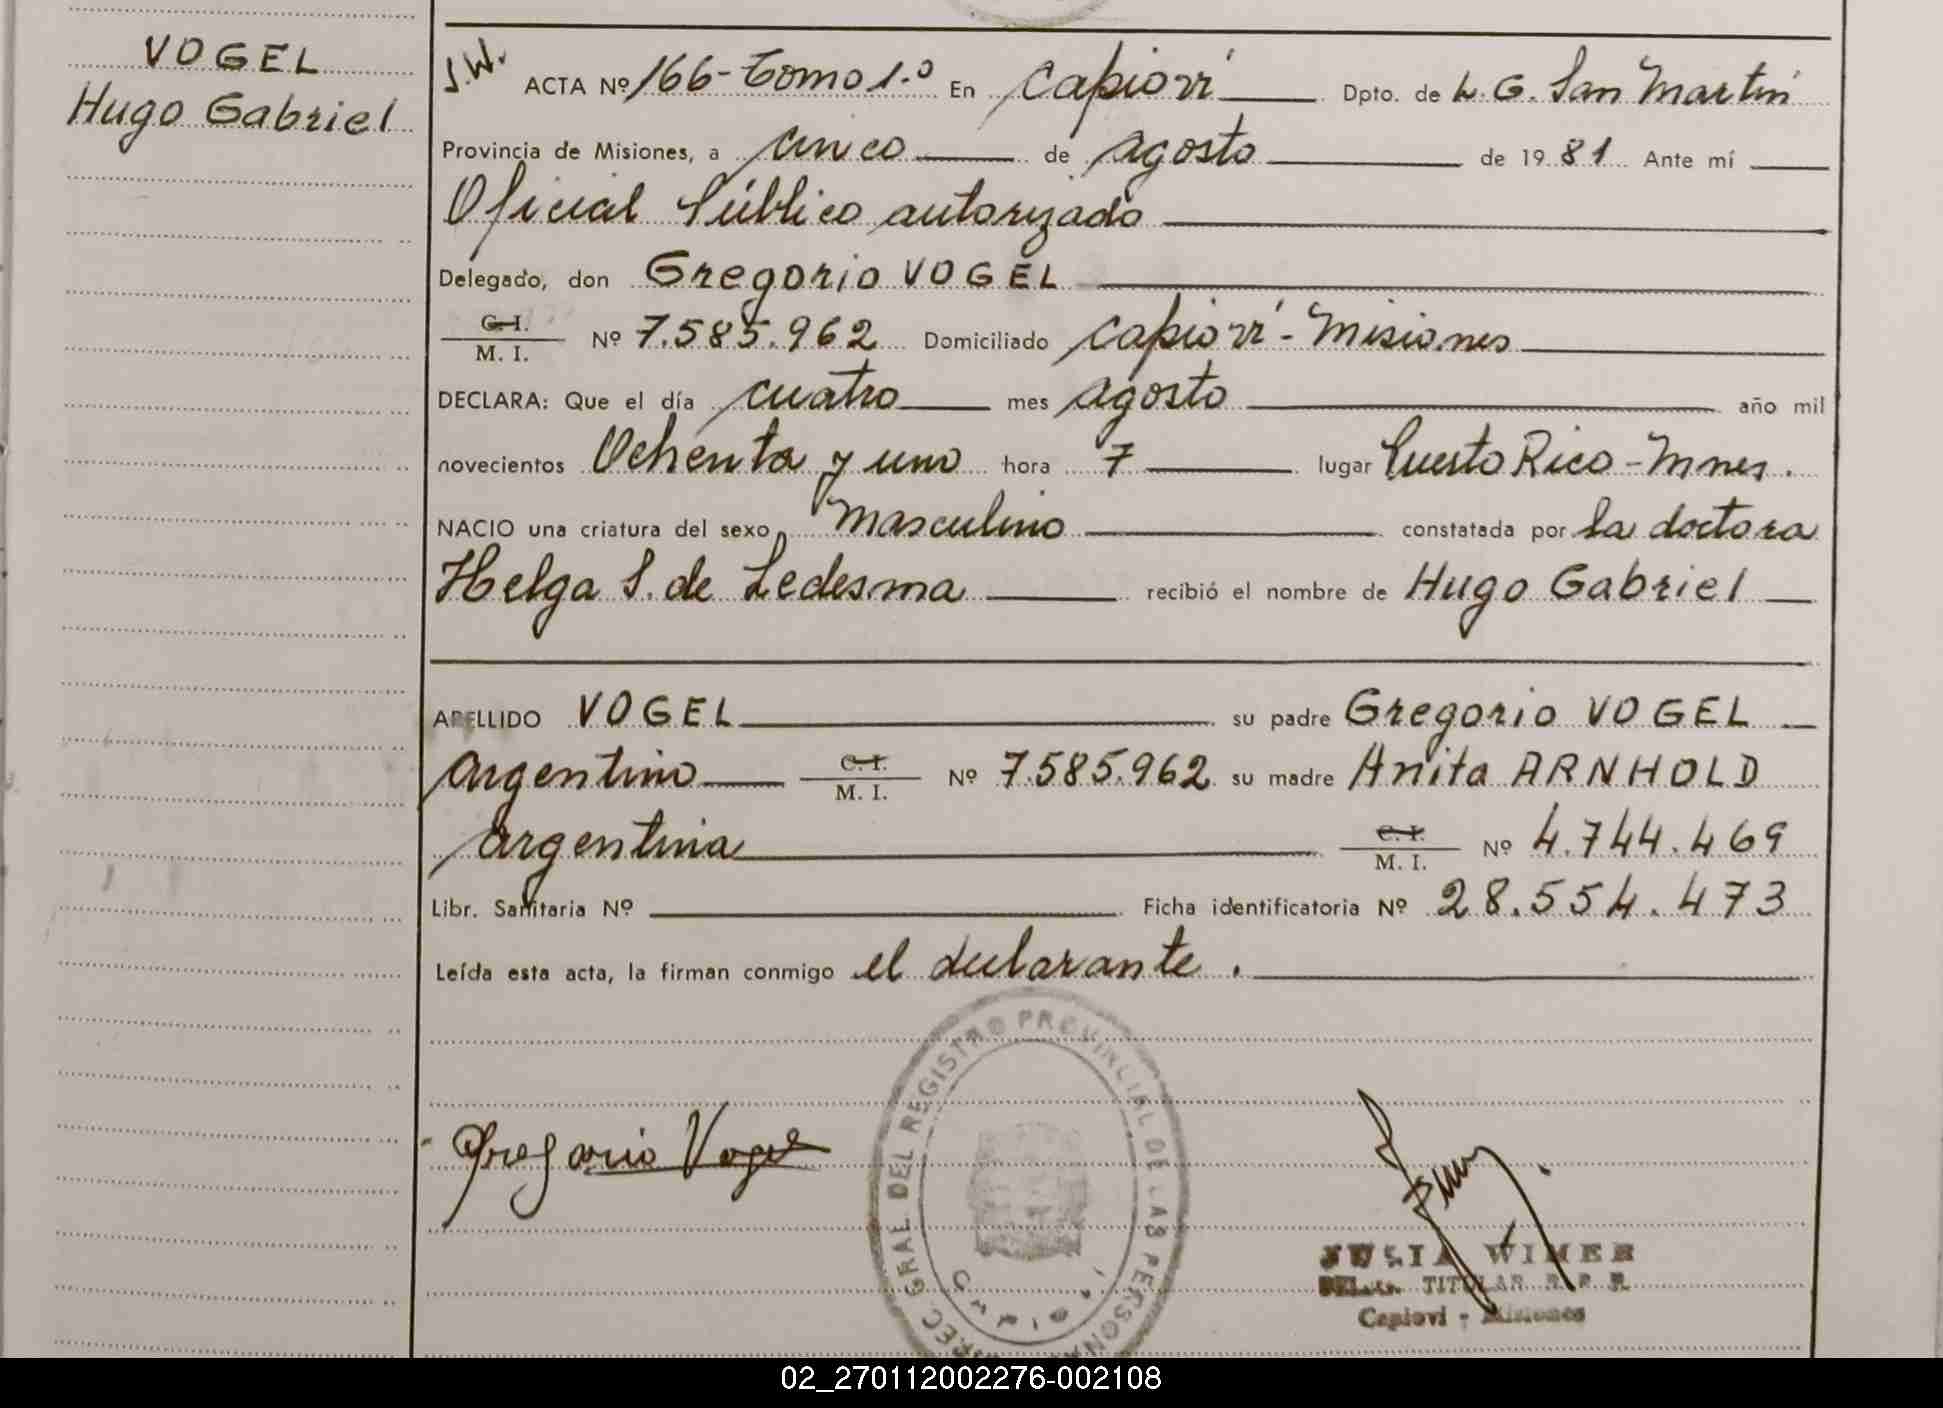 VOGEL
Hugo Gabriel
J.W. ACTA Nº 166- Tomo 1.º En Capioví Dpto. de L. G. San Martín
Provincia de Misiones, a cinco de agosto de 1981 Ante mí
Oficial Público autorizado
Delegado, don Gregorio VOGEL
C. I. M. I. Nº 7.585.962 Domiciliado Capioví - Misiones
DECLARA: Que el día cuatro mes agosto año mil
novecientos Ochenta y uno hora 7 lugar Puerto Rico - Mnes.
NACIO una criatura del sexo masculino constatada por la doctora
Helga S. de Ledesma recibió el nombre de Hugo Gabriel
APELLIDO VOGEL su padre Gregorio VOGEL
argentino C. I. M. I. Nº 7.585.962 su madre Anita ARNHOLD
argentina C. I. M. I. Nº 4.744.469
Libr. Sanitaria Nº Ficha identificatoria Nº 28.554.473
Leída esta acta, la firman conmigo el declarante.
DIREC. GRAL DEL REGISTRO PROVINCIAL DE LAS PERSONAS
Capioví
Gregorio Vogel
JULIA WIMER
TITULAR R. P. P.
Capiovi - Misiones
02_270112002276-002108